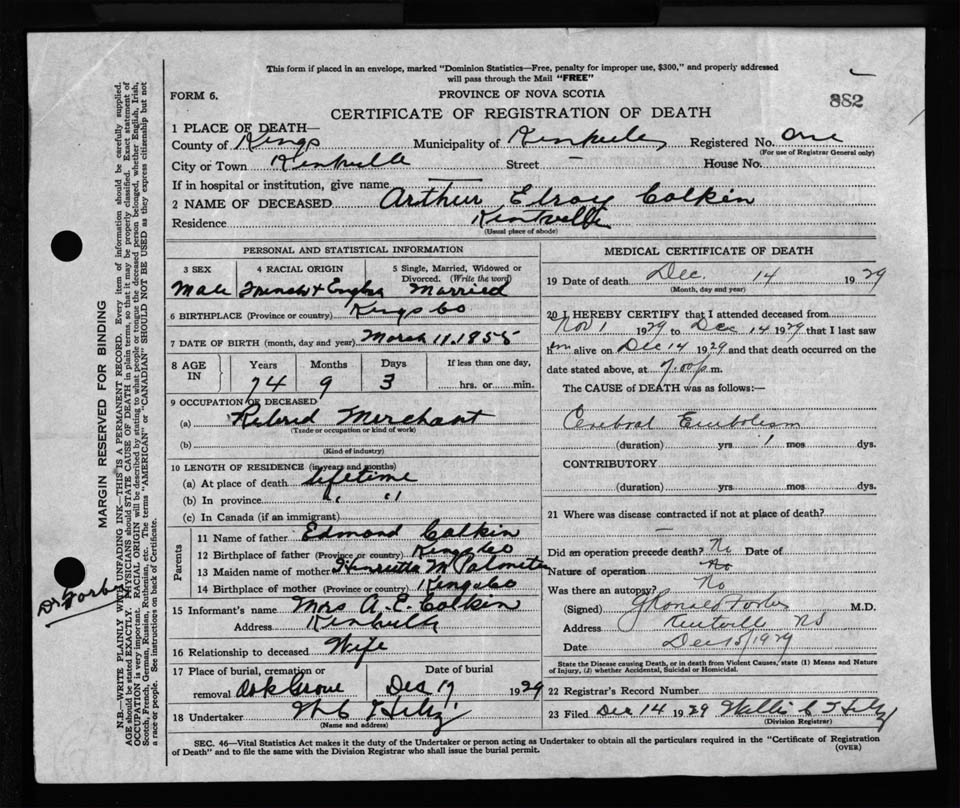 This form if placed in an envelope, marked "Dominion Statistics—Free, penalty for improper use, $300," and properly addressed
will pass through the Mail "FREE"
FORM 6.
PROVINCE OF NOVA SCOTIA
882
CERTIFICATE OF REGISTRATION OF DEATH
1 PLACE OF DEATH—
County of Kings Municipality of Kentville Registered No. One
(For use of Registrar General only)
City or Town Kentville Street — House No.
If in hospital or institution, give name
2 NAME OF DECEASED Arthur Elroy Calkin
Residence Kentville
(Usual place of abode)
PERSONAL AND STATISTICAL INFORMATION
3 SEX 4 RACIAL ORIGIN 5 Single, Married, Widowed or Divorced. (Write the word)
Male French & English Married
6 BIRTHPLACE (Province or country) Kings Co
7 DATE OF BIRTH (month, day and year) March 11. 1855
8 AGE IN Years Months Days If less than one day,
74 9 3 hrs. or min.
9 OCCUPATION OF DECEASED
(a) Retired Merchant
(Trade or occupation or kind of work)
(b)
(Kind of industry)
10 LENGTH OF RESIDENCE (in years and months)
(a) At place of death lifetime
(b) In province " "
(c) In Canada (if an immigrant)
Parents
11 Name of father Edmond Calkin
12 Birthplace of father (Province or country) Kings Co
13 Maiden name of mother Henrietta M Palmeter
14 Birthplace of mother (Province or country) Kings Co
15 Informant's name Mrs A. E. Calkin
Address Kentville
16 Relationship to deceased Wife
17 Place of burial, cremation or removal Oak Grove Date of burial Dec 17 1929
18 Undertaker W C Hiltz
(Name and address)
MEDICAL CERTIFICATE OF DEATH
19 Date of death Dec. 14 1929
(Month, day and year)
20 I HEREBY CERTIFY that I attended deceased from
Nov 1 1929 to Dec 14 1929 that I last saw
him alive on Dec 14 1929 and that death occurred on the
date stated above, at 7.00 p.m.
The CAUSE of DEATH was as follows:—
Cerebral Embolism
(duration) yrs. 1 mos. dys.
CONTRIBUTORY
(duration) yrs. mos. dys.
21 Where was disease contracted if not at place of death?
—
Did an operation precede death? No Date of
Nature of operation No
Was there an autopsy? No
(Signed) J Ronald Forbes M.D.
Address Kentville NS
Date Dec 15/1929
State the Disease causing Death, or in death from Violent Causes, state (1) Means and Nature
of Injury, (2) whether Accidental, Suicidal or Homicidal.
22 Registrar's Record Number
23 Filed Dec 14 1929 Willis C Hiltz
(Division Registrar)
SEC. 46—Vital Statistics Act makes it the duty of the Undertaker or person acting as Undertaker to obtain all the particulars required in the "Certificate of Registration
of Death" and to file the same with the Division Registrar who shall issue the burial permit.
(OVER)
MARGIN RESERVED FOR BINDING
N.B.—WRITE PLAINLY WITH UNFADING INK—THIS IS A PERMANENT RECORD. Every item of information should be carefully supplied.
AGE should be stated EXACTLY. PHYSICIANS should STATE CAUSE OF DEATH in plain terms, so that it may be properly classified. Exact statement of
OCCUPATION is very important. RACIAL ORIGIN will be described by stating to what people or tongue the deceased person belonged, whether English, Irish,
Scotch, French, German, Russian, Ruthenian, etc. The terms "AMERICAN" or "CANADIAN" SHOULD NOT BE USED as they express citizenship but not
a race or people. See instructions on back of Certificate.
Dr Forbes